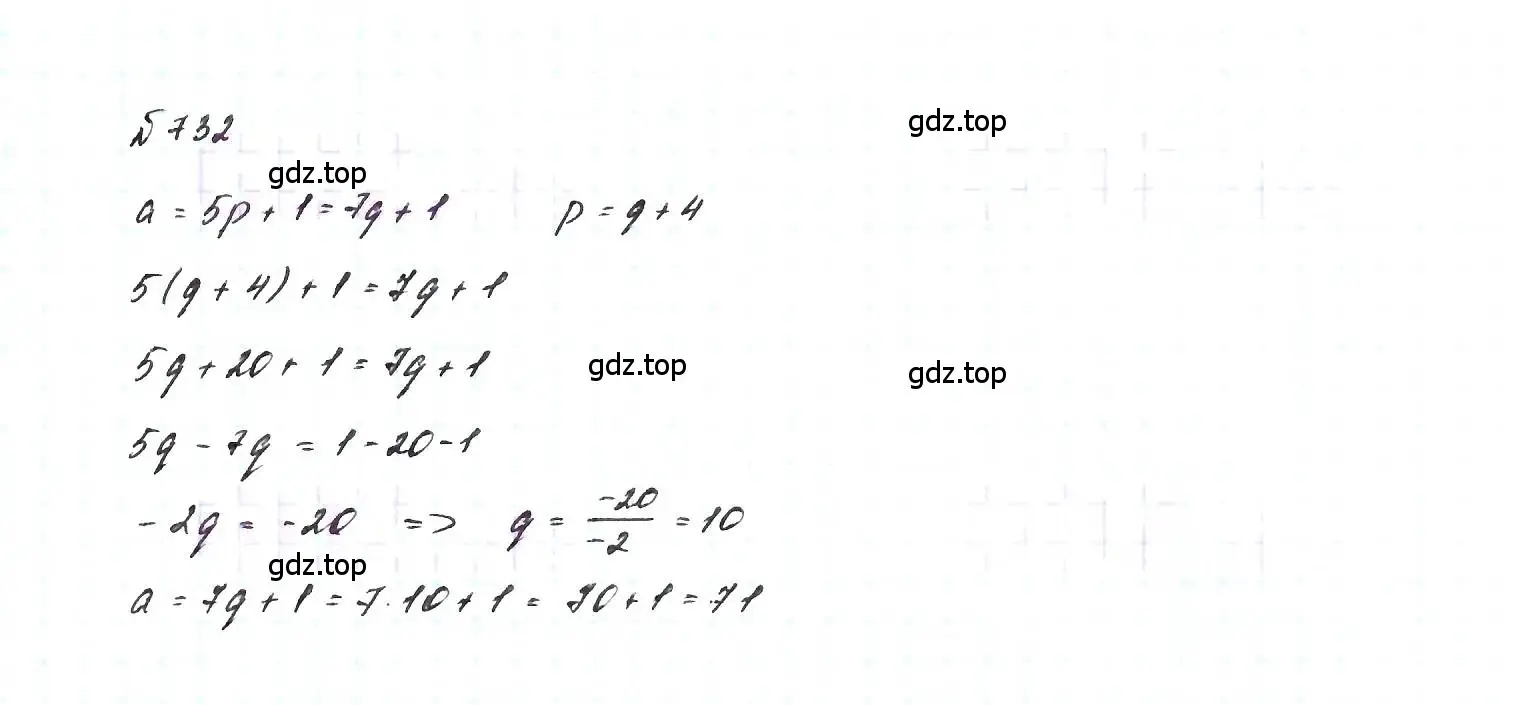 № 732
gdz.top
gdz.top
a = 5p + 1 = 7q + 1 p = q + 4
5(q + 4) + 1 = 7q + 1
5q + 20 + 1 = 7q + 1 gdz.top gdz.top
5q - 7q = 1 - 20 - 1
-2q = -20 => q = \frac{-20}{-2} = 10
gdz.top
a = 7q + 1 = 7 · 10 + 1 = 70 + 1 = 71